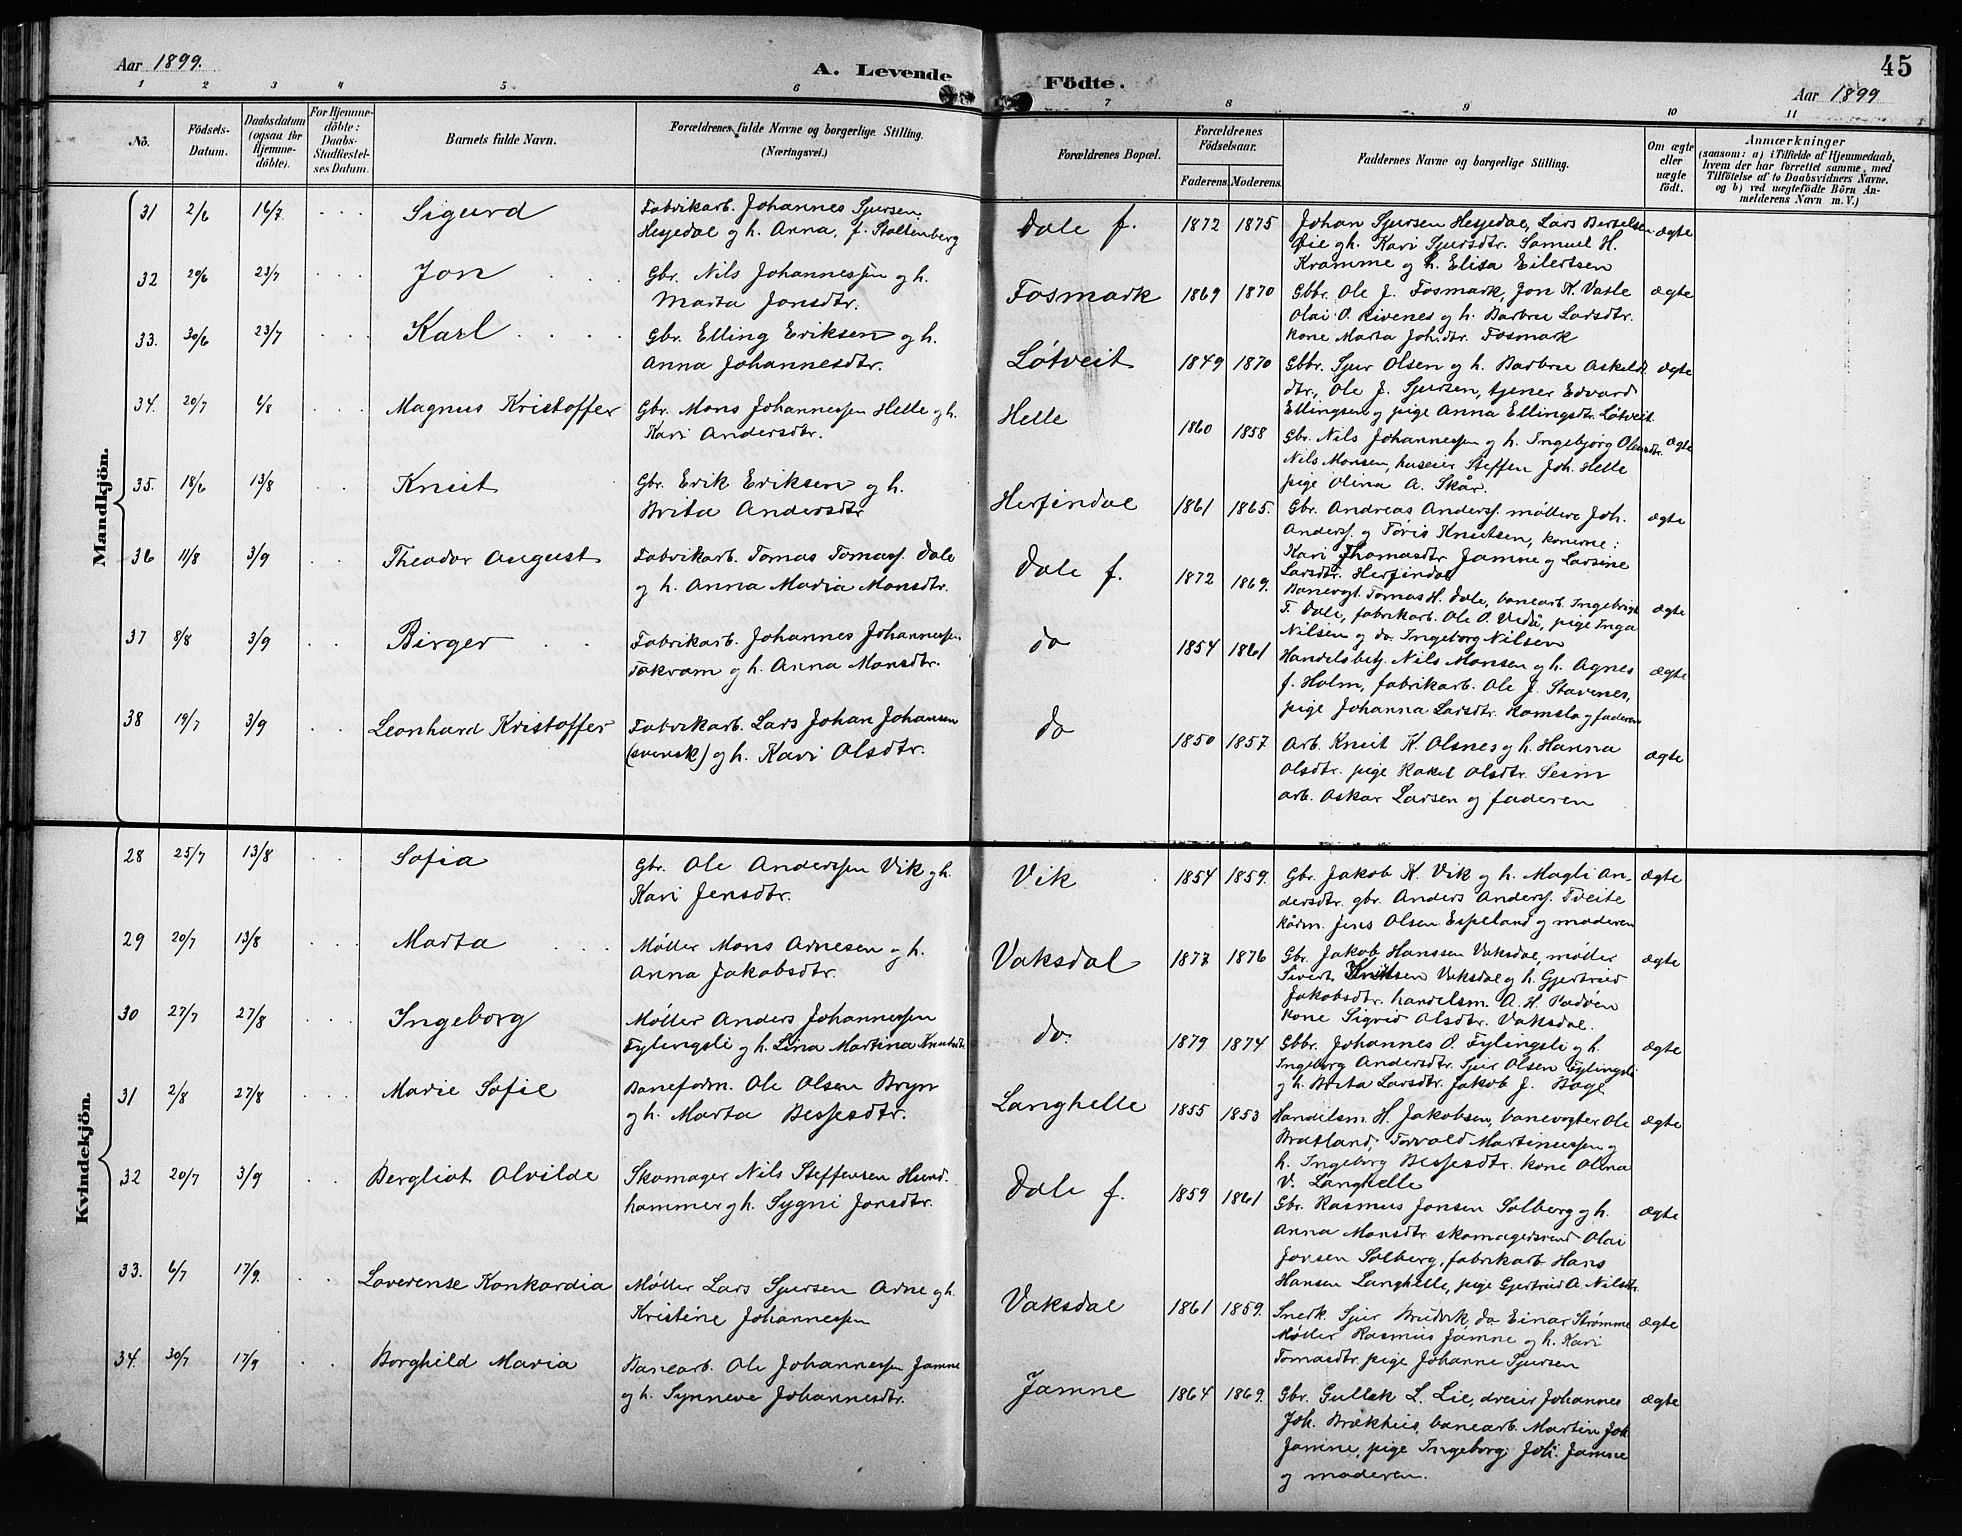 Aar 1899.
A. Levende Födte.
45
Aar 1899
1 2 3 4 5 6 7 8 9 10 11
No.
Födsels-
Datum.
Daabsdatum
(ogsaa for
Hjemme-
döbte).
For Hjemme-
döbte:
Daabs-
Stadfæstel-
ses Datum.
Barnets fulde Navn.
Forældrenes fulde Navne og borgerlige Stilling.
(Næringsvei.)
Forældrenes Bopæl.
Forældrenes
Födselsaar.
Faderens. Moderens.
Faddernes Navne og borgerlige Stilling.
Om ægte
eller
uægte
født.
Anmærkninger
(saasom: a) i Tilfælde af Hjemmedaab,
hvem der har forrettet samme, med
Tilföielse af to Daabsvidners Navne.
og b) ved uægtefödte Börn An-
melderens Navn m. V.)
Mandkjön.
31 2/6 16/7 Sigurd
Fabrikarb. Johannes Sjursen
Hesjedal og h. Anna, f. Stoltenberg
Dale f. 1872 1875
Johan Sjursen Hesjedal, Lars Bertelsen
Øie og h. Kari Sjursdtr. Samuel H.
Kramme og h. Elisa Eilertsen
ægte
32 20/6 23/7 Jon
Gbr. Nils Johannessen og h.
Marta Jonsdtr.
Fosmark 1869 1870
Gbbr. Ole J. Fosmark, Jon K. Vatle
Olai O. Rivenes og h. Barbru Larsdtr.
kone Marta Joh.dtr. Fosmark
ægte
33. 30/6 23/7 Karl
Gbr. Elling Eriksen og h.
Anna Johannesdtr.
Løtveit 1849 1870
Gbbr. Sjur Olsen og h. Barbru Askeld-
dtr., Ole J. Sjursen, tjener Edvard
Ellingsen og pige Anna Ellingsdtr. Løtveit
ægte
34. 20/7 6/8 Magnus Kristoffer
Gbr. Mons Johannessen Helle og h.
Kari Andersdtr.
Helle 1860 1858
Gbr. Nils Johannessen og h. Ingebjorg Olsdtr.
Nils Monsen, huseier Steffen Joh. Helle
pige Olina A. Skår.
ægte
35. 18/6 13/8 Knut
Gbr. Erik Eriksen og h.
Brita Andersdtr
Herfindal 1861 1865.
Gbr. Andreas Anderss. møllere Joh.
Anderss. og Tøris Knutsen, konerne:
Kari Thomasdtr Jamne og Larsine
Larsdtr. Herfindal
ægte
36 11/8 3/9 Theodor August
Fabrikarb. Tomas Tomass. Dale
og h. Anna Maria Monsdtr.
Dale f. 1872 1869.
Banevogt. Tomas H. Dale, banearb. Ingebrigt
T. Dale, fabrikarb. Ole O. Vedå, pige Inga
Nilsen og do. Ingeborg Nilsen
ægte
37 8/8 3/9 Birger
Fabrikarb. Johannes Johannessen
Takvam og h. Anna Monsdtr.
do 1854 1861
Handelsbetj. Nils Monsen og h. Agnes
f. Holm, fabrikarb. Ole J. Stavenes,
pige Johanna Larsdtr. Romslo og faderen
ægte
38 19/7 3/9 Leonhard Kristoffer
Fabrikarb. Lars Johan Johansen
(svensk) og h. Kari Olsdtr.
do 1850 1857
Arb. Knut K. Olsnes og h. Hanna
Olsdtr. pige Rakel Olsdtr. Seim
arb. Oskar Larsen og faderen
ægte
Kvindekjön.
28 25/7 13/8 Sofia
Gbr. Ole Anderssen Vik og h.
Kari Jensdtr.
Vik 1854 1859.
Gbr. Jakob K. Vik og h. Magli An-
dersdtr. gbr. Anders Anderss. Tveite
kårm. Jens Olsen Espeland og moderen
ægte
29 20/7 13/8 Marta
Møller Mons Arnesen og h.
Anna Jakobsdtr.
Vaksdal 1877 1876
Gbr. Jakob Hanssen Vaksdal, møller
Sivert Knutsen Vaksdal og h. Gjertrud
Jakobsdtr. handelsm. A. H. Padøen
kone Sigrid Olsdtr. Vaksdal.
ægte
30 27/7 27/8 Ingeborg
Møller Anders Johannessen
Fylingsli og h. Lina Martina Knutsdtr.
do. 1879 1874
Gbbr. Johannes O. Fylingsli og h.
Ingeborg Andersdtr. Sjur Olsen Fylingsli
og h. Brita Larsdtr. Jakob J. Boge
ægte
31 2/8 27/8 Marie Sofie
Baneform. Ole Olsen Bryn
og h. Marta Bessesdtr.
Langhelle 1855 1853
Handelsm. H. Jakobsen, banevogter Ole
Bratland, Torvald Martinussen og
h. Ingeborg Bessesdtr. kone Olina
V. Langhelle
ægte
32 20/7 3/9 Bergliot Alvilde
Skomager Nils Steffensen Hund-
hammer og h. Sygni Jonsdtr.
Dale f. 1859 1861
Gbr. Rasmus Jonsen Solberg og h.
Anna Monsdtr skomagersvend Olai
Jonsen Solberg, fabrikarb. Hans
Hansen Langhelle, pige Gjertrud A. Nilsdtr.
ægte
33. 6/7 17/9. Laverense Konkordia
Møller Lars Sjursen Arne og h.
Kristine Johannessen
Vaksdal 1861 1859.
Snedk. Sjur Brudvik, do Einar Strømme
Møller Rasmus Jamne og h. Kari
Tomasdtr, pige Johanne Sjursen
ægte
34. 30/7 17/9 Borghild Maria
Banearb. Ole Johannessen Jamne
og h. Synneve Johannesdtr.
Jamne 1864 1869.
Gbr. Gullak L. Lie, dreier Johannes
Joh. Brækhus, banearb. Martin Joh.
Jamne, pige Ingeborg Joh. Jamne
og moderen.
ægte